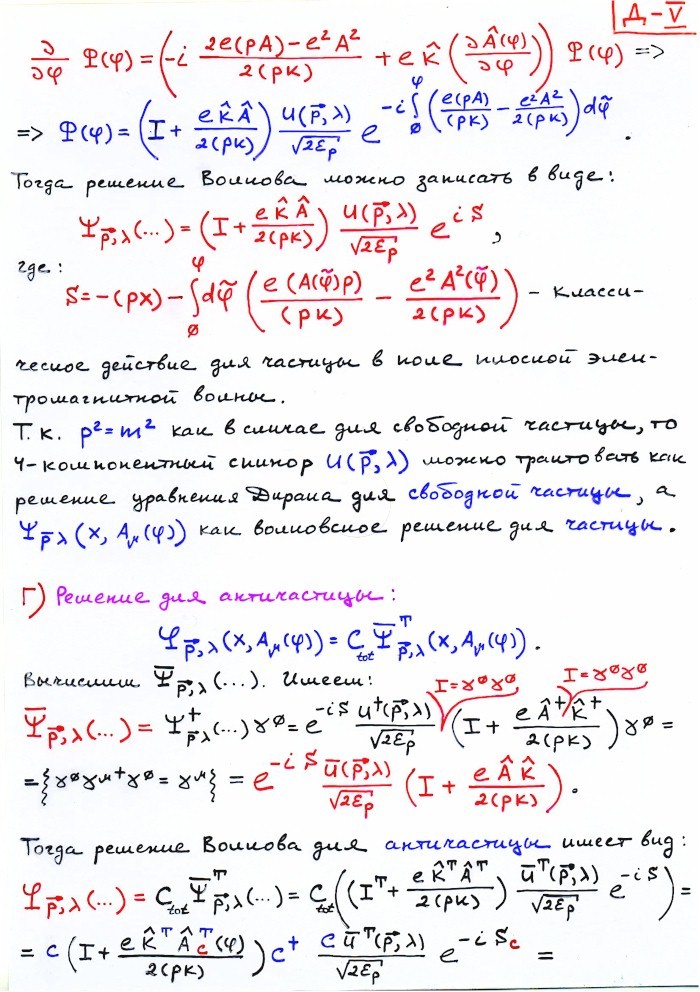 Д-V
∂/∂φ Φ(φ) = (-i (2e(pA) - e²A²)/(2(pk)) + e k̂ (∂Â(φ)/∂φ)) Φ(φ) =>
=> Φ(φ) = (I + e k̂ Â/(2(pk))) u(p⃗,λ)/√(2ε_p) e^{-i∫_0^φ (e(pA)/(pk) - e²A²/(2(pk))) dφ̃} .
Тогда решение Волкова можно записать в виде:
Ψ_{p⃗,λ}(...) = (I + e k̂ Â/(2(pk))) u(p⃗,λ)/√(2ε_p) e^{iS} ,
где:
S = -(px) - ∫_0^φ dφ̃ (e(A(φ̃)p)/(pk) - e²A²(φ̃)/(2(pk))) – класси-
ческое действие для частицы в поле плоской элек-
тромагнитной волны.
Т.к. p²=m² как в случае для свободной частицы, то
4-компонентный спинор u(p⃗,λ) можно трактовать как
решение уравнения Дирака для свободной частицы, а
Ψ_{p⃗λ}(x, A_μ(φ)) как волковское решение для частицы.
Г) Решение для античастицы:
φ_{p⃗,λ}(x,A_μ(φ)) = C_tot Ψ̄^T_{p⃗,λ}(x,A_μ(φ)) .
Вычислим Ψ̄_{p⃗,λ}(...). Имеем: I=γ⁰γ⁰ I=γ⁰γ⁰
Ψ̄_{p⃗,λ}(...) = Ψ⁺_{p⃗λ}(...)γ⁰ = e^{-iS} u⁺(p⃗,λ)/√(2ε_p) (I + e Â⁺ k̂⁺/(2(pk))) γ⁰ =
= {γ⁰γ^{μ+}γ⁰ = γ^μ} = e^{-iS} ū(p⃗,λ)/√(2ε_p) (I + e Â k̂/(2(pk))) .
Тогда решение Волкова для античастицы имеет вид:
φ_{p⃗,λ}(...) = C_tot Ψ̄^T_{p⃗,λ}(...) = C_tot ((I^T + e k̂^T Â^T/(2(pk))) ū^T(p⃗,λ)/√(2ε_p) e^{-iS}) =
= C (I + e k̂^T Â_c^T(φ)/(2(pk))) C⁺ C ū^T(p⃗,λ)/√(2ε_p) e^{-iS_c} =